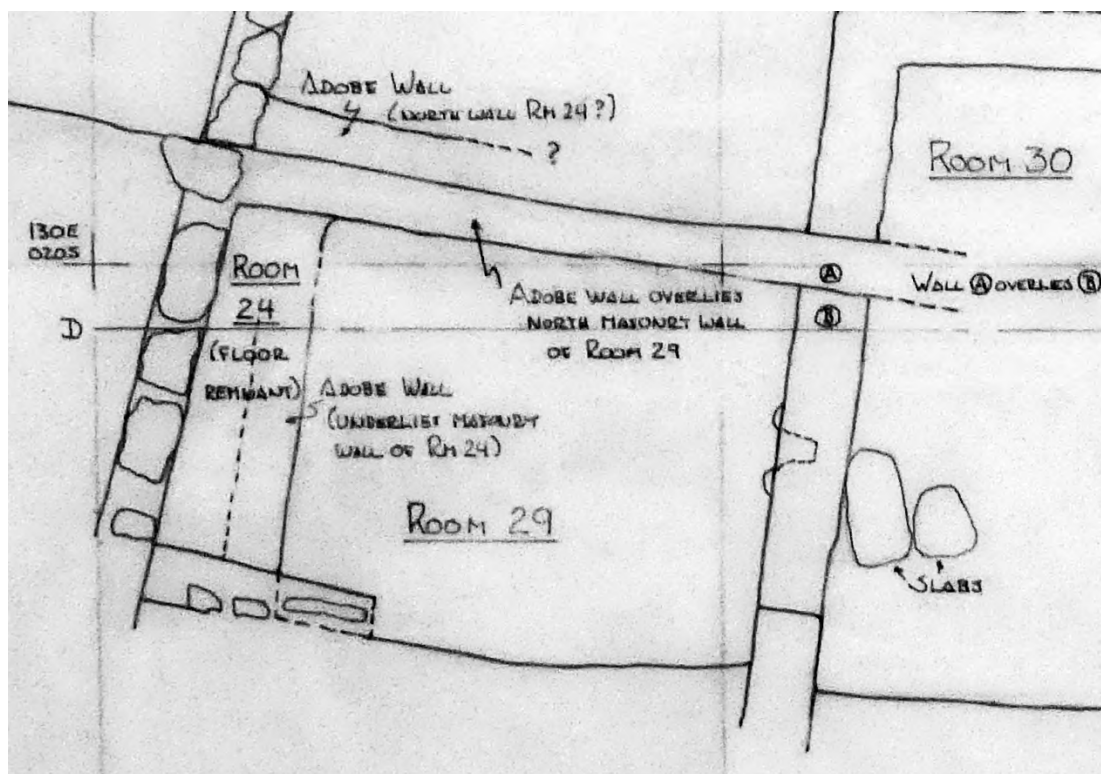 ADOBE WALL
(NORTH WALL RM 24?)
?
ROOM 30
130E
020S
ROOM
24
(FLOOR
REMNANT)
A
WALL A OVERLIES B
ADOBE WALL OVERLIES
NORTH MASONRY WALL
OF ROOM 29
B
D
ADOBE WALL
(UNDERLIES MASONRY
WALL OF RM 24)
ROOM 29
SLABS